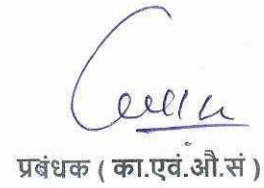 प्रबंधक ( का.एवं.औ.सं )